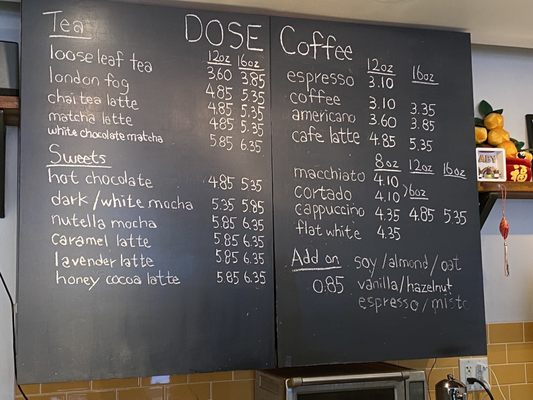 Tea
DOSE
12oz 16oz
loose leaf tea 3.60 3.85
london fog 4.85 5.35
chai tea latte 4.85 5.35
matcha latte 4.85 5.35
white chocolate matcha 5.85 6.35
Sweets
hot chocolate 4.85 5.35
dark/white mocha 5.35 5.85
nutella mocha 5.85 6.35
caramel latte 5.85 6.35
lavender latte 5.85 6.35
honey cocoa latte 5.85 6.35
Coffee
12oz 16oz
espresso 3.10
coffee 3.10 3.35
americano 3.60 3.85
cafe latte 4.85 5.35
8oz 12oz 16oz
macchiato 4.10
cortado 4.10
cappuccino 4.35 4.85 5.35
flat white 4.35
Add on soy/almond/oat
0.85 vanilla/hazelnut
espresso/
ABY
福